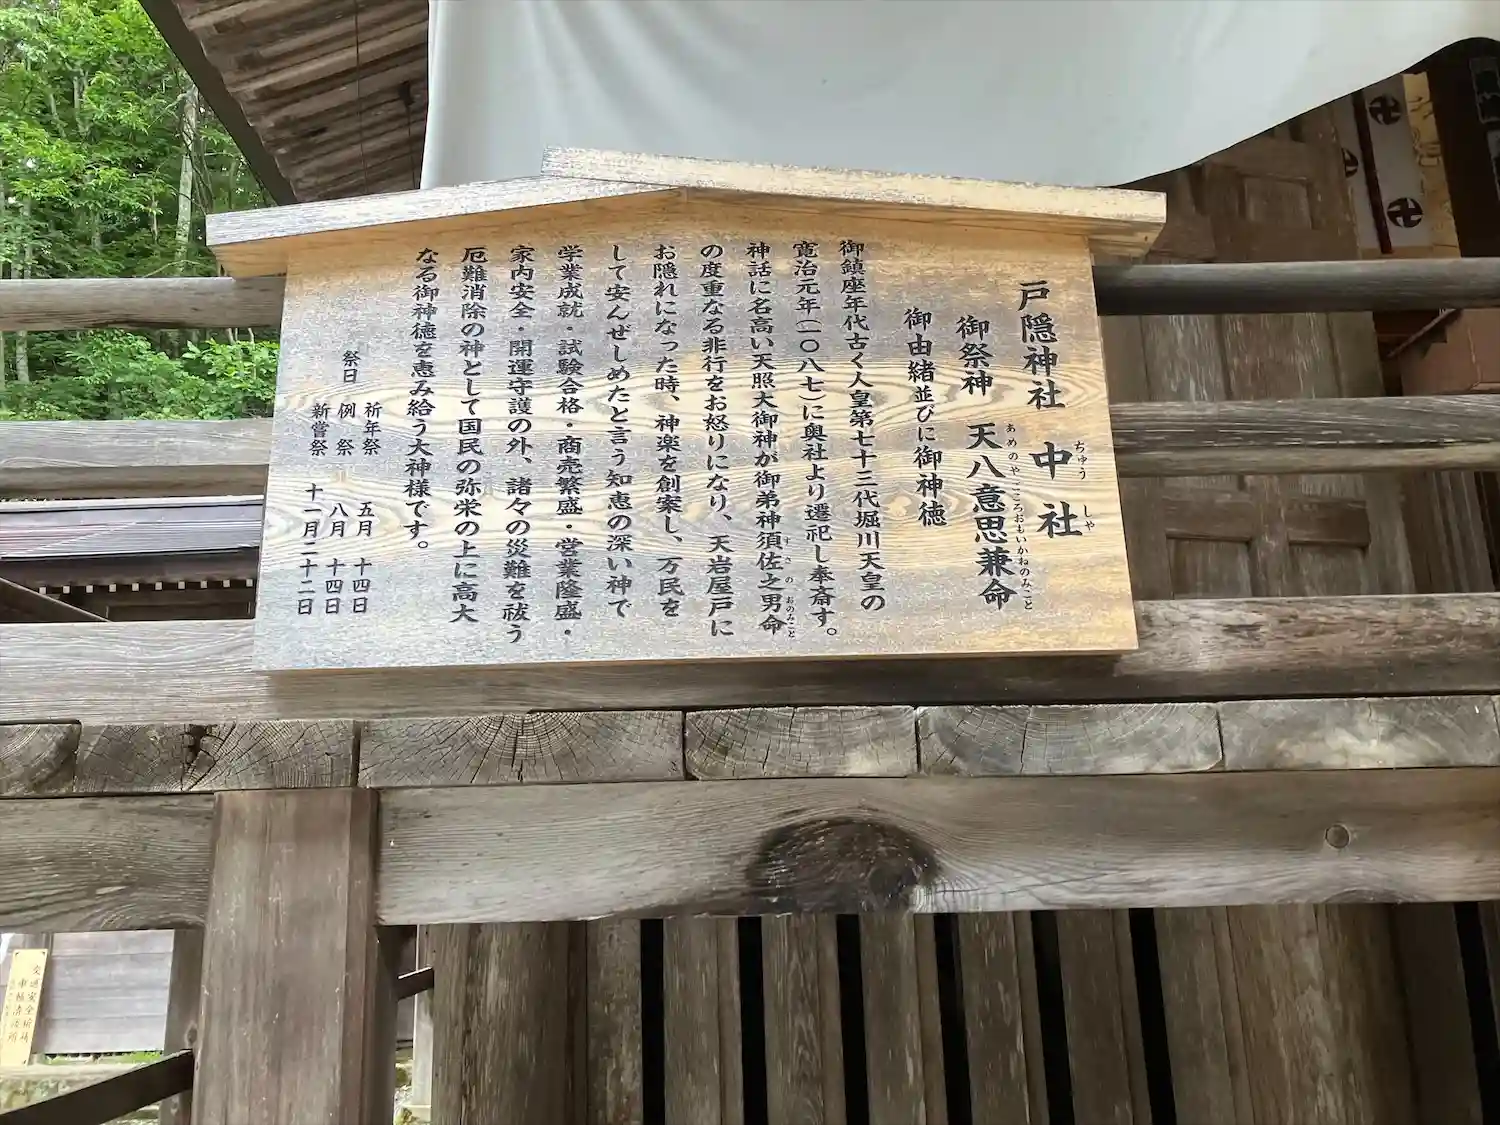 戸隠神社 中社
ちゅう しゃ
御祭神 天八意思兼命
あめのやごころおもいかねのみこと
御由緒並びに御神徳
御鎮座年代古く人皇第七十三代堀川天皇の
寛治元年(一〇八七)に奥社より遷祀し奉斎す。
神話に名高い天照大御神が御弟神須佐之男命
すさのおのみこと
の度重なる非行をお怒りになり、天岩屋戸に
お隠れになった時、神楽を創案し、万民を
して安んぜしめたと言う知恵の深い神で
学業成就・試験合格・商売繁盛・営業隆盛・
家内安全・開運守護の外、諸々の災難を祓う
厄難消除の神として国民の弥栄の上に高大
なる御神徳を恵み給う大神様です。
祈年祭 五月 十四日
祭日 例祭 八月 十四日
新嘗祭 十一月二十二日
交通安全祈祷